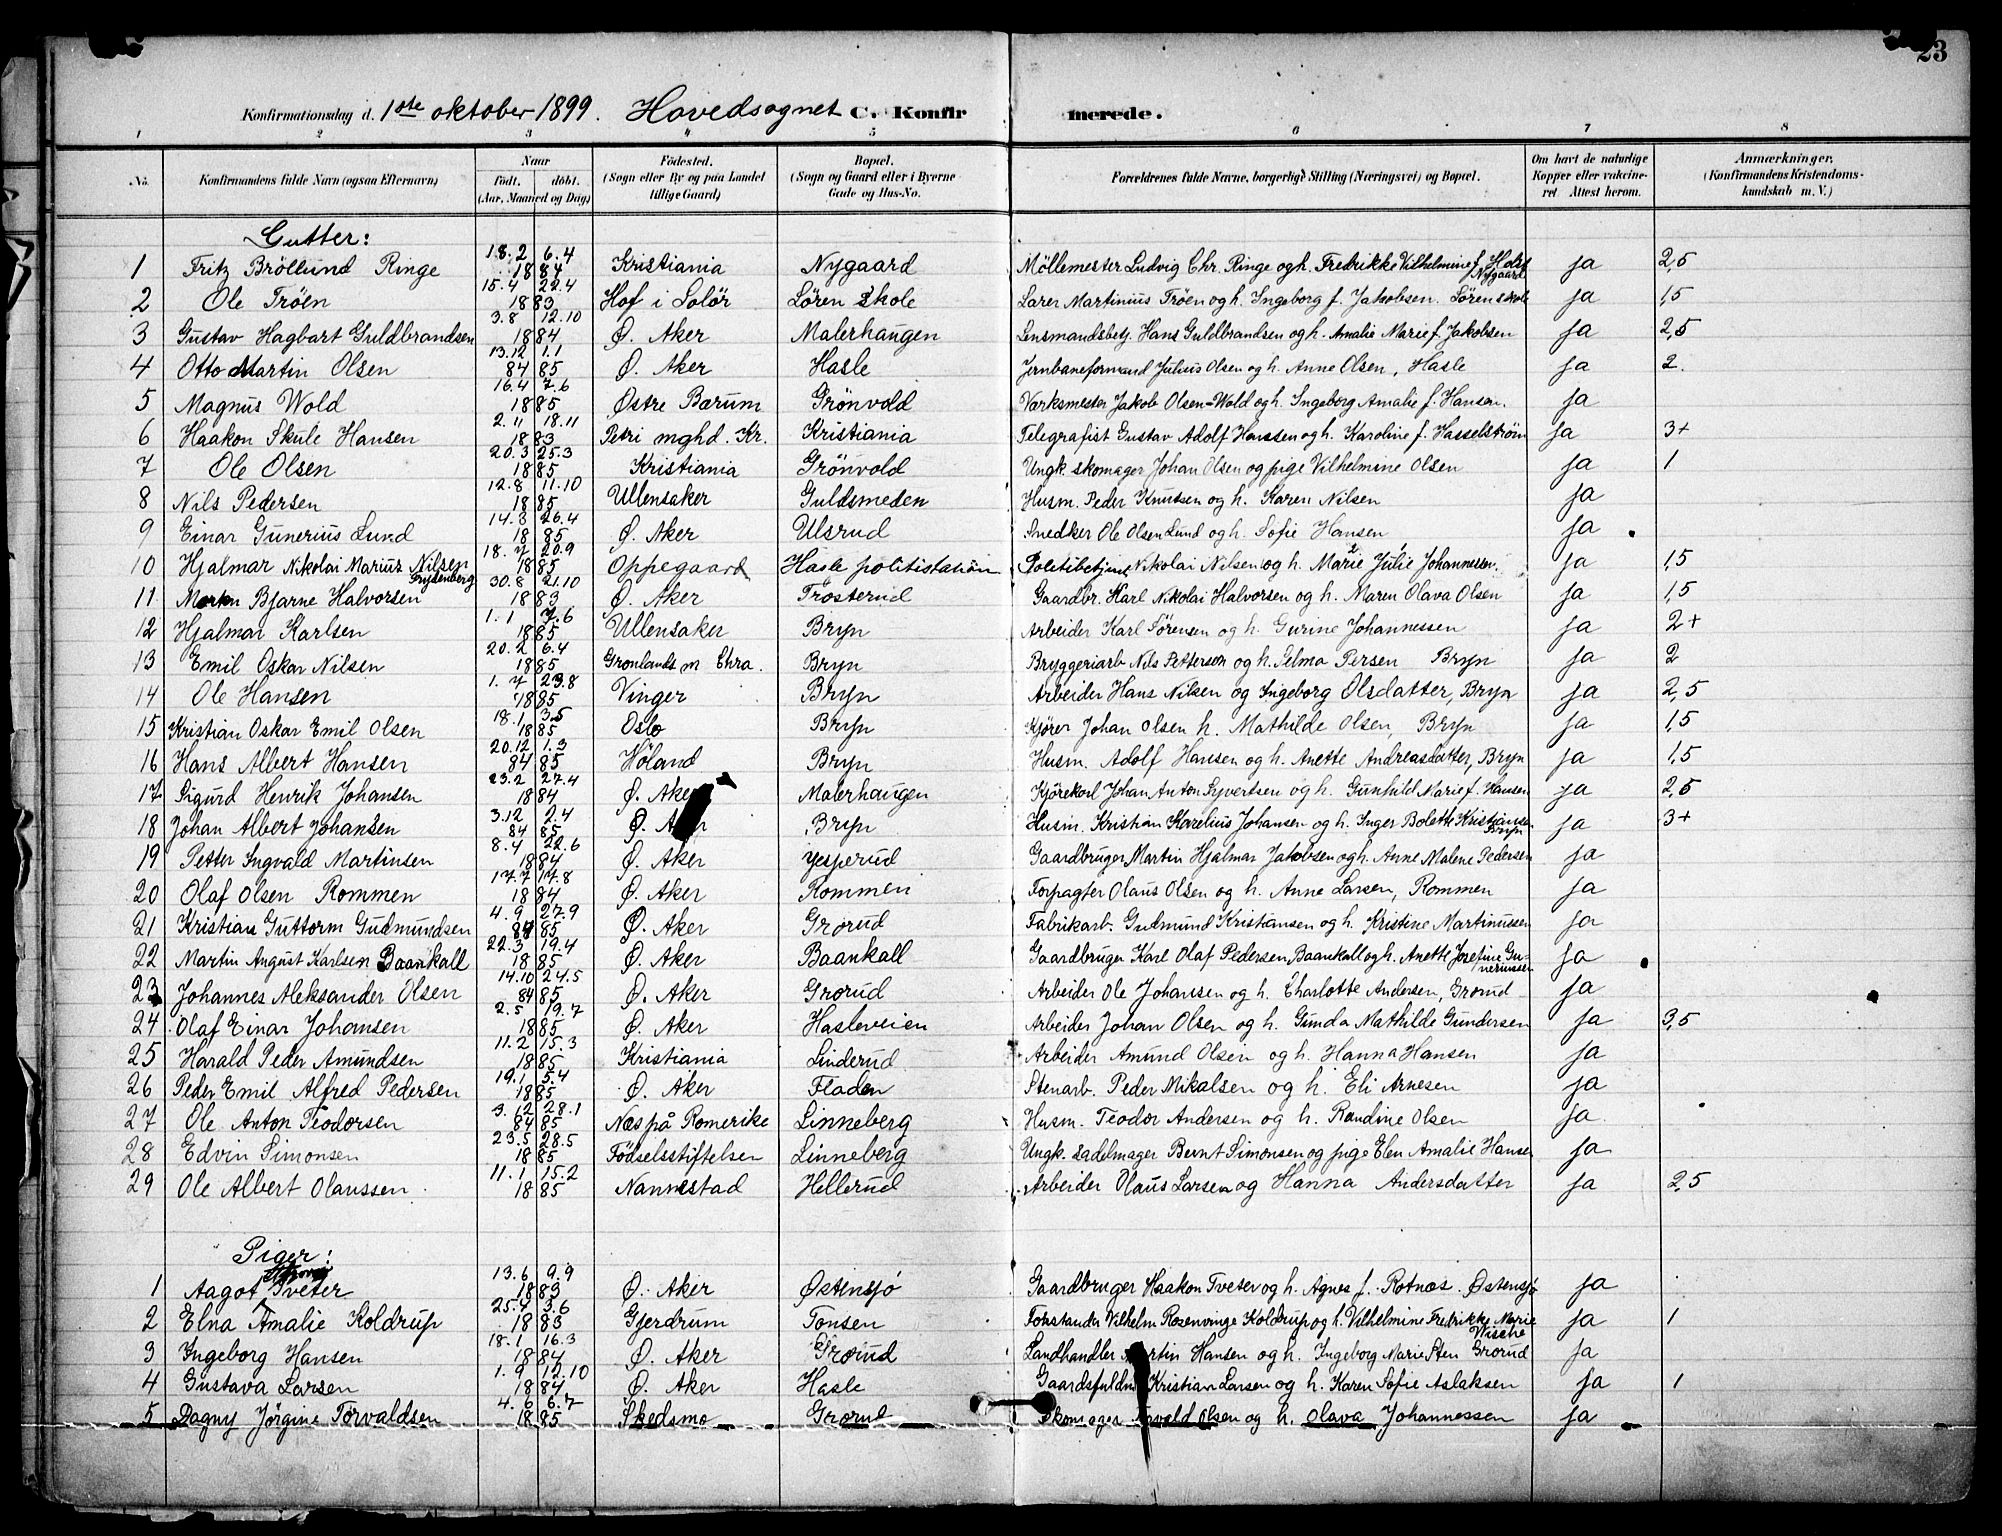 23
Konfirmationsdag d. 1ste oktober 1899. Hovedsognet C. Konfirmerede.
1 2 3 4 5 6 7 8
No. Konfirmandens fulde Navn (ogsaa Efternavn) Naar Født. døbt. (Aar, Maaned og Dag) Fødested. (Sogn eller By og paa Landet tillige Gaard) Bopæl. (Sogn og Gaard eller i Byerne Gade og Hus-No. Forældrenes fulde Navne, borgerlige Stilling (Næringsvei) og Bopæl. Om havt de naturlige Kopper eller vakcineret Attest herom. Anmærkninger. (Konfirmandens Kristendomskundskab m. V.)
Gutter:
1 Fritz Bröllund Ringe 18.2 6.4 1884 Kristiania Nygaard Möllemester Ludvig Chr. Ringe og h. Fredrikke Vilhelmine f. Holst Nygaard ja 2,5
2 Ole Tröen 15.4 22.4 1883 Hof i Solör Lören skole Lærer Martinius Tröen og h. Ingeborg f. Jakobsen. Lörenskole ja 1,5
3 Gustav Hagbart Guldbrandsen 3.8 12.10 1884 Ø. Aker Malerhaugen Lensmandsbetj. Hans Guldbrandsen og h. Amalie Marie f. Jakobsen ja 2,5
4 Otto Martin Olsen 13.12 84 1.1 85 Ø. Aker Hasle Jernbaneformand Julius Olsen og h. Anne Olsen, Hasle ja 2.
5 Magnus Wold 16.4 7.6 1885 Østre Bærum Grönvold Værksmester Jakob Olsen-Wold og h. Ingeborg Amalie f. Hansen. ja
6 Haakon Skule Hansen 2.11 18.11 1883 Petri mghd. Kr. Kristiania Telegrafist Gustav Adolf Hanssen og h. Karoline f. Hasselström ja 3+
7 Ole Olsen 20.3 25.3 1885 Kristiania Grönvold Ungk. skomager Johan Olsen og pige Vilhelmine Olsen ja 1
8 Nils Pedersen 12.8 11.10 1885 Ullensaker Guldsmeden Husm. Peder Knutsen og h. Karen Nilsen ja
9 Einar Gunerius Lund 14.3 26.4 1885 Ø. Aker Ulsrud Snedker Ole Olsen Lund og h. Sofie Hansen ja
10 Hjalmar Nikolai Marius Nilsen Frydenberg 18.7 20.9 1885 Oppegaard Hasle politistation Politibetjent Nikolai Nilsen og h. Marie Julie Johannesen. ja 1,5
11 Bjarne Halvorsen 30.8 21.10 1883 Ø. Aker Trosterud Gaardbr. Karl Nikolai Halvorsen og h. Maren Olava Olsen ja 1,5
12 Hjalmar Karlsen 1.1 7.6 1885 Ullensaker Bryn Arbeider Karl Sörensen og h. Gurine Johannessen ja 2+
13 Emil Oskar Nilsen 20.2 6.4 1885 Grönlands m Chra. Bryn Bryggeriarb Nils Petterson og h. Selma Persen Bryn ja 2
14 Ole Hansen 1.7 23.8 1885 Vinger Bryn Arbeider Hans Nilsen og Ingeborg Olsdatter, Bryn ja 2,5
15 Kristian Oskar Emil Olsen 18.1 3.5 1885 Oslo Bryn Kjörer Johan Olsen h. Mathilde Olsen, Bryn ja 1,5
16 Hans Albert Hansen 20.12 84 1.3 85 Höland Bryn Husm. Adolf Hansen og h. Anette Andreasdatter, Bryn ja 1,5
17 Sigurd Henrik Johansen 23.2 27.4 1884 Ø. Aker Malerhaugen Kjörekarl Johan Anton Syvertsen og h. Gunhild Marie f. Hansen ja 2,5
18 Johan Albert Johansen 3.12 84 2.4 85 Ø. Aker Bryn Husm. Kristian Karelius Johansen og h. Inger Bolette Kristiansen Bryn ja 3+
19 Petter Ingvald Martinsen 8.4 22.6 1884 Ø. Aker Jesperud Gaardbruger Martin Hjalmar Jakobsen og h. Anne Malene Pedersen ja
20 Olaf Olsen Rommen 17.7 17.8 1884 Ø. Aker Rommen Forpagter Olaus Olsen og h. Anne Larsen, Rommen ja
21 Kristian Guttorm Gudmundsen 4.9 84 27.9 85 Ø. Aker Grorud Fabrikarb. Gudmund Kristiansen og h. Kristine Martinussen ja
22 Martin August Karlsen Baankall 22.3 19.4 1885 Ø. Aker Baankall Gaardbruger Karl Olaf Pedersen, Baankall og h. Anette Josefine Gunerussen ja
23 Johannes Aleksander Olsen 14.10 84 24.5 85 Ø. Aker Grorud Arbeider Ole Johansen og h. Charlotte Andersen, Grorud ja
24 Olaf Einar Johansen 2.5 19.7 1885 Ø. Aker Hasleveien Arbeider Johan Olsen og h. Gunda Mathilde Gundersen ja 3,5
25 Harald Peder Amundsen 11.2 15.3 1885 Kristiania Linderud Arbeider Amund Olsen og h. Hanna Hansen ja
26 Peder Emil Alfred Pedersen 19.1 5.4 1885 Ø. Aker Fladen Stenarb. Peder Mikalsen og h. Eli Arnesen ja
27 Ole Anton Teodorsen 3.12 84 28.1 85 Næs på Romerike Linneberg Husm. Teodor Andersen og h. Randine Olsen ja
28 Edvin Simonsen 23.5 28.5 1885 Födselsstiftelsen Linneberg Ungk. sadelmager Bernt Simonsen og pige Elen Amalie Hansen ja
29 Ole Albert Olaussen 11.1 15.2 1885 Nannestad Hellerud Arbeider Olaus Larsen og Hanna Andersdatter ja 2,5
Piger:
1 Aagot Tveter 13.6 9.9 1883 Ø. Aker Østensjø Gaardbruger Haakon Tveter og h. Agnes f. Rotnæs. Østensjø ja
2 Elna Amalie Koldrup 25.4 3.6 1883 Gjerdrum Tonsen Forstander Vilhelm Rozenvinge Koldrup og h. Vilhelmine Fredrikke Marie Wische ja 1
3 Ingeborg Hansen 18.1 16.3 1884 Ø. Aker Grorud Landhandler Martin Hansen og h. Ingeborg Marie Sten Grorud ja
4 Gustava Larsen 1.9 12.10 1884 Ø. Aker Hasle Gaardsfuldm. Kristian Larsen og h. Karen Sofie Aslaksen ja 1
5 Dagny Jörgine Torvaldsen 4.6 6.7 1885 Skedsmo Grorud Skomager Torvald Olsen og h. Olava Johannessen ja